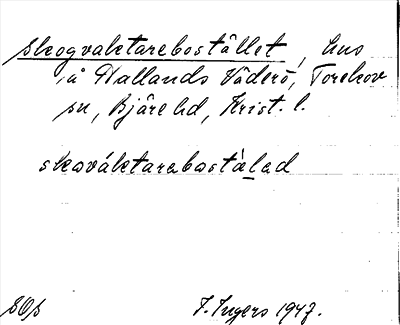 skogvaktarebostället, hus
å Hallands Väderö, Torekov
sn, Bjäre hd, Krist. l.
skováktarabostàlad
SOS
I. Ingers 1947.